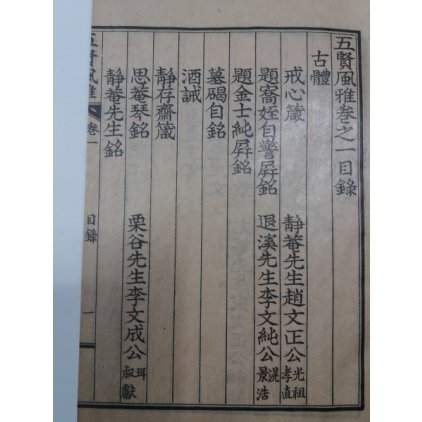 五賢風雅卷之一目錄
古體
戒心箴 靜菴先生趙文正公 光祖 孝直
題寯姪自警屛銘 退溪先生李文純公 滉 景浩
題金士純屛銘
墓碣自銘
酒誡
靜存齋箴
思菴琴銘 栗谷先生李文成公 珥 叔獻
靜菴先生銘
五賢風雅 卷一 目錄 一